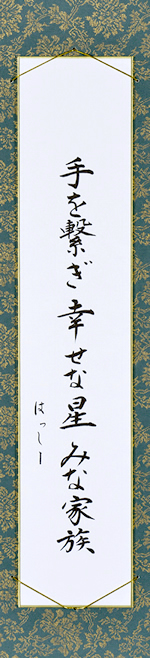 手を繋ぎ幸せな星みな家族
はっしー